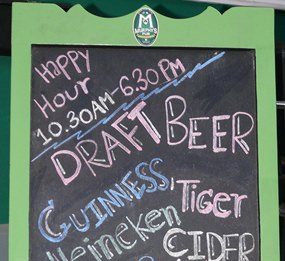 MURPHY'S
HAPPY
HOUR
10.30AM-6.30PM
DRAFT BEER
GUINNESS, TIGER
Heineken CIDER